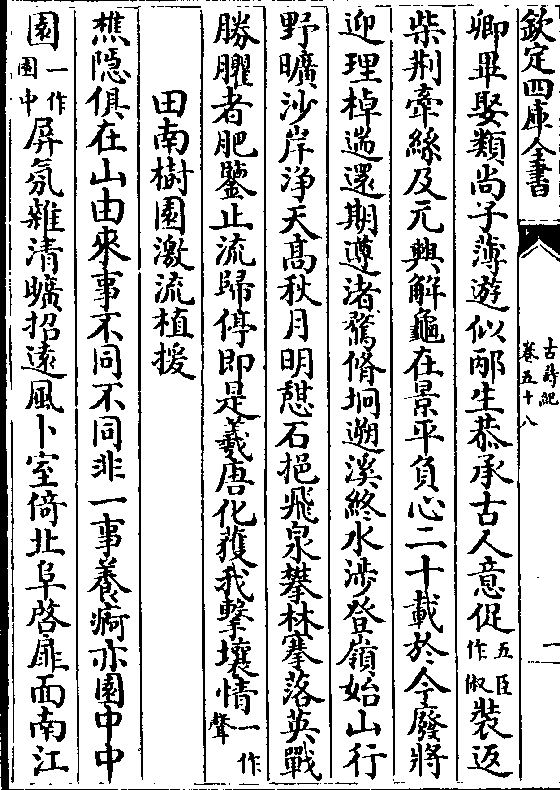 欽定四庫全書
古詩紀
卷五十八
一
卿畢娶類尚子薄遊似邴生恭承古人意促五臣作俶裝返
柴荆牽絲及元興解龜在景平負心二十載於今廢將
迎理棹遄還期遵渚騖脩坰遡溪終水涉登嶺始山行
野曠沙岸浄天髙秋月明憇石挹飛泉攀林搴落英戰
勝臞者肥鑒止流歸停即是羲唐化獲我擊壤情一作聲
田南樹園激流植援
樵隠俱在山由來事不同不同非一事養痾亦園中中
園一作園中屏氛雜清曠招逺風卜室倚北阜啓扉面南江